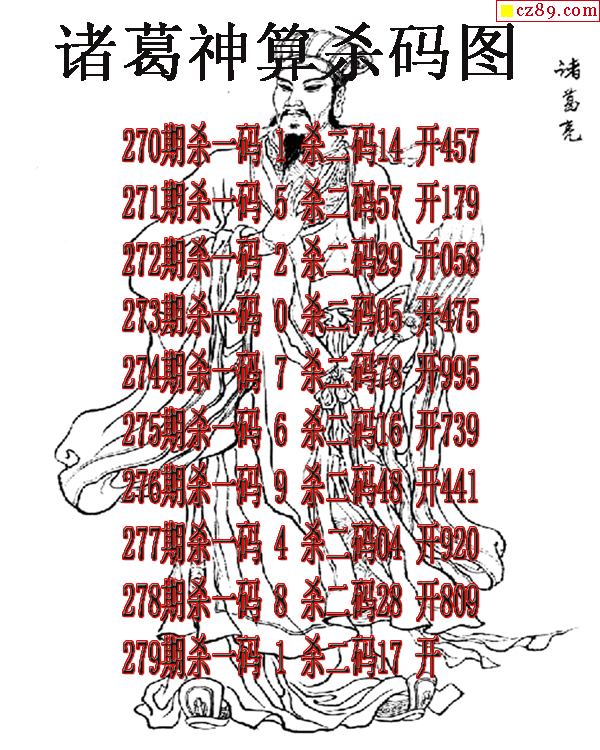 cz89.com
诸葛神算杀码图
诸葛亮
270期杀一码 1 杀二码14 开457
271期杀一码 5 杀二码57 开179
272期杀一码 2 杀二码29 开058
273期杀一码 0 杀二码05 开475
274期杀一码 7 杀二码78 开995
275期杀一码 6 杀二码16 开739
276期杀一码 9 杀二码48 开441
277期杀一码 4 杀二码04 开920
278期杀一码 8 杀二码28 开809
279期杀一码 1 杀二码17 开